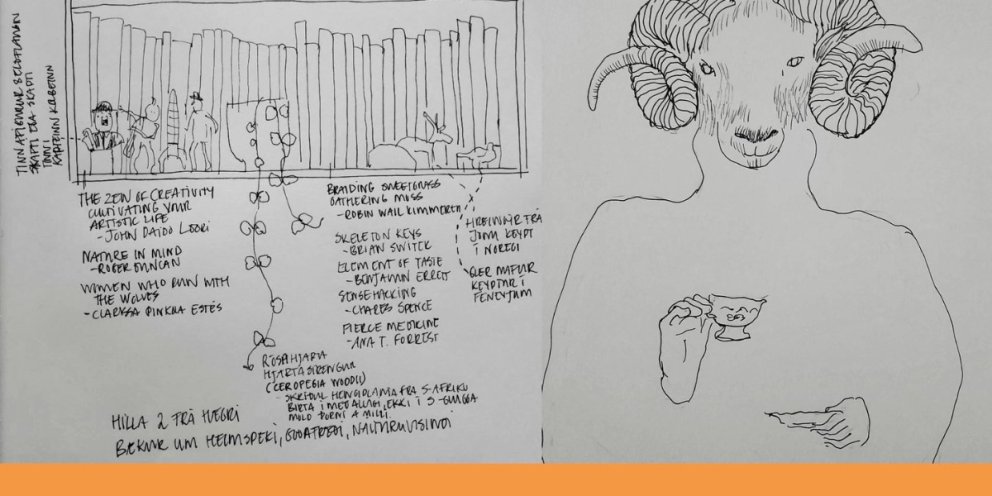 SKAFTI EÐA SKAPTI
TINNI
KAFTEINN KOLBEINN
THE ZEN OF CREATIVITY
CULTIVATING YOUR
ARTISTIC LIFE
- JOHN DAIDO LOORI
NATURE IN MIND
- ROGER DUNCAN
WOMEN WHO RUN WITH
THE WOLVES
- CLARISSA PINKOLA ESTÉS
BRAIDING SWEETGRASS
GATHERING MOSS
- ROBIN WALL KIMMERER
SKELETON KEYS
- BRIAN SWITEK
ELEMENT OF TASTE
- BENJAMIN ERRETT
SENSEHACKING
- CHARLES SPENCE
FIERCE MEDICINE
- ANA T. FORREST
HREINDÝR FRÁ
JÓNI KEYPT
Í NOREGI
GLER
KEYPTUR Í
FENEYJUM
RÓSAHJARTA
HJARTASTRENGUR
(CEROPEGIA WOODII)
SKRIÐUL HENGIPLANTA FRÁ S-AFRÍKU
BIRTA Í MEÐALLAGI, EKKI Í S-GLUGGA
MOLD ÞORNI Á MILLI.
HILLA 2 FRÁ HÆGRI
BÆKUR UM HEIMSPEKI, NÁTTÚRUVÍSINDI